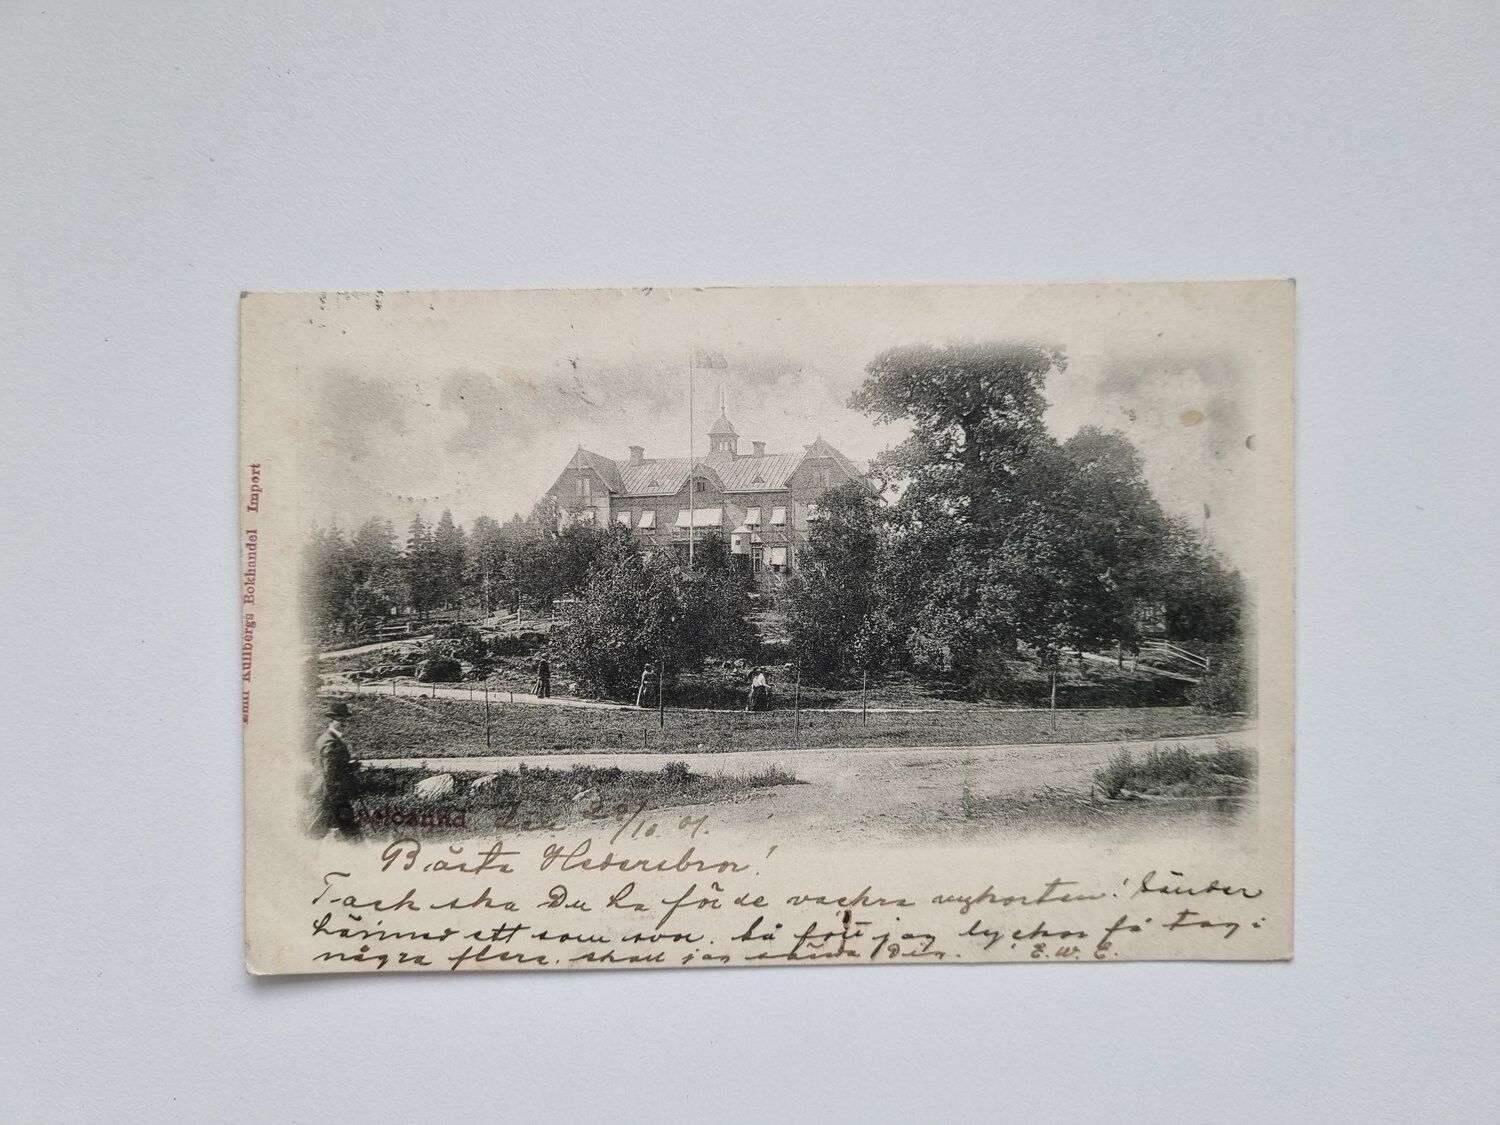 Emil Kullbergs Bokhandel Import
den 20/10 01.
Bästa Hedersbror!
Tack ska Du ha för de vackra vykorten! Sänder
härmed ett som svar. Så fort jag lyckas få tag i
några flera, skall jag sända Dig. E. W. E.